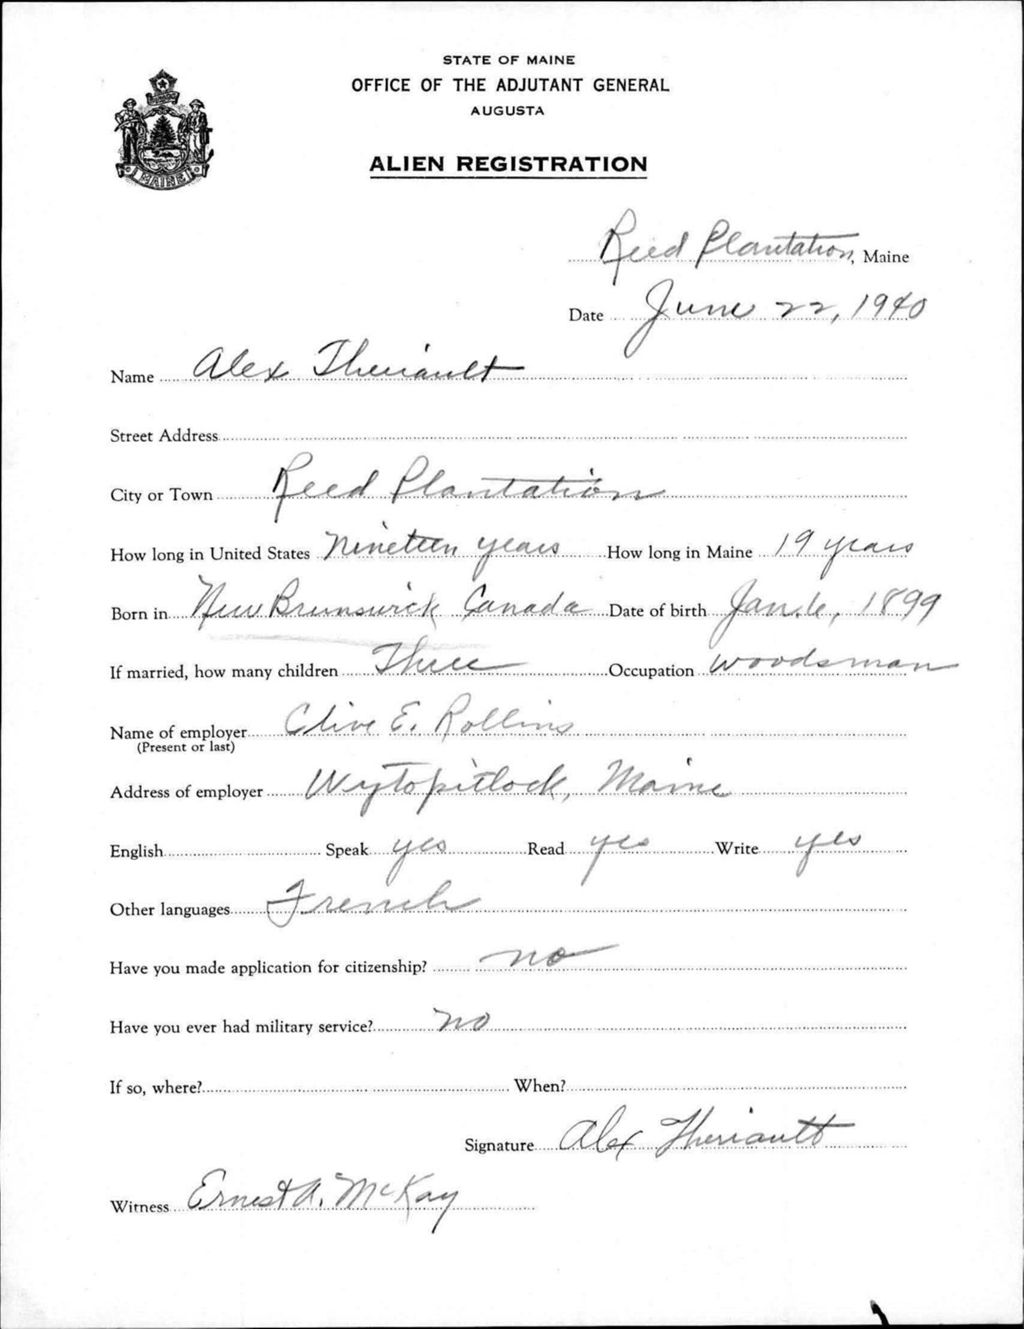 STATE OF MAINE
OFFICE OF THE ADJUTANT GENERAL
AUGUSTA
ALIEN REGISTRATION
MAINE
Reed Plantation, Maine
Date June 22, 1940
Name Alex Theriault
Street Address
City or Town Reed Plantation
How long in United States Nineteen years How long in Maine 19 years
Born in New Brunswick Canada Date of birth Jan. 6, 1899
If married, how many children Three Occupation woodsman
Name of employer Clive E. Rollins
(Present or last)
Address of employer Wytopitlock, Maine
English Speak yes Read yes Write yes
Other languages French
Have you made application for citizenship? no
Have you ever had military service? no
If so, where? When?
Signature Alex Theriault
Witness Ernest A. McKay